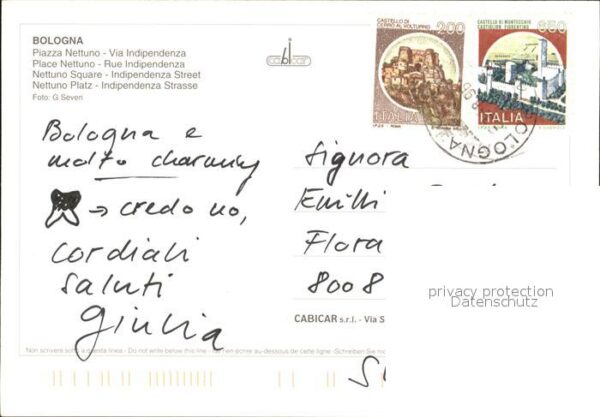 BOLOGNA
Piazza Nettuno - Via Indipendenza
Place Nettuno - Rue Indipendenza
Nettuno Square - Indipendenza Street
Nettuno Platz - Indipendenza Strasse
Foto: G Severi
cabicar
CASTELLO DI
CERRO AL VOLTURNO 200
ITALIA
CASTELLO DI MONTECCHIO
CASTIGLION FIORENTINO 650
ITALIA
BOLOGNA
Bologna e
molto charming
→ credo no,
cordiali
saluti
Giulia
Signora
Emilli
Flora
8008
privacy protection
Datenschutz
CABICAR s.r.l. - Via S
Non scrivere sotto questa linea - Do not write below this line - Ne rien écrire au-dessous de cette ligne - Schreiben Sie